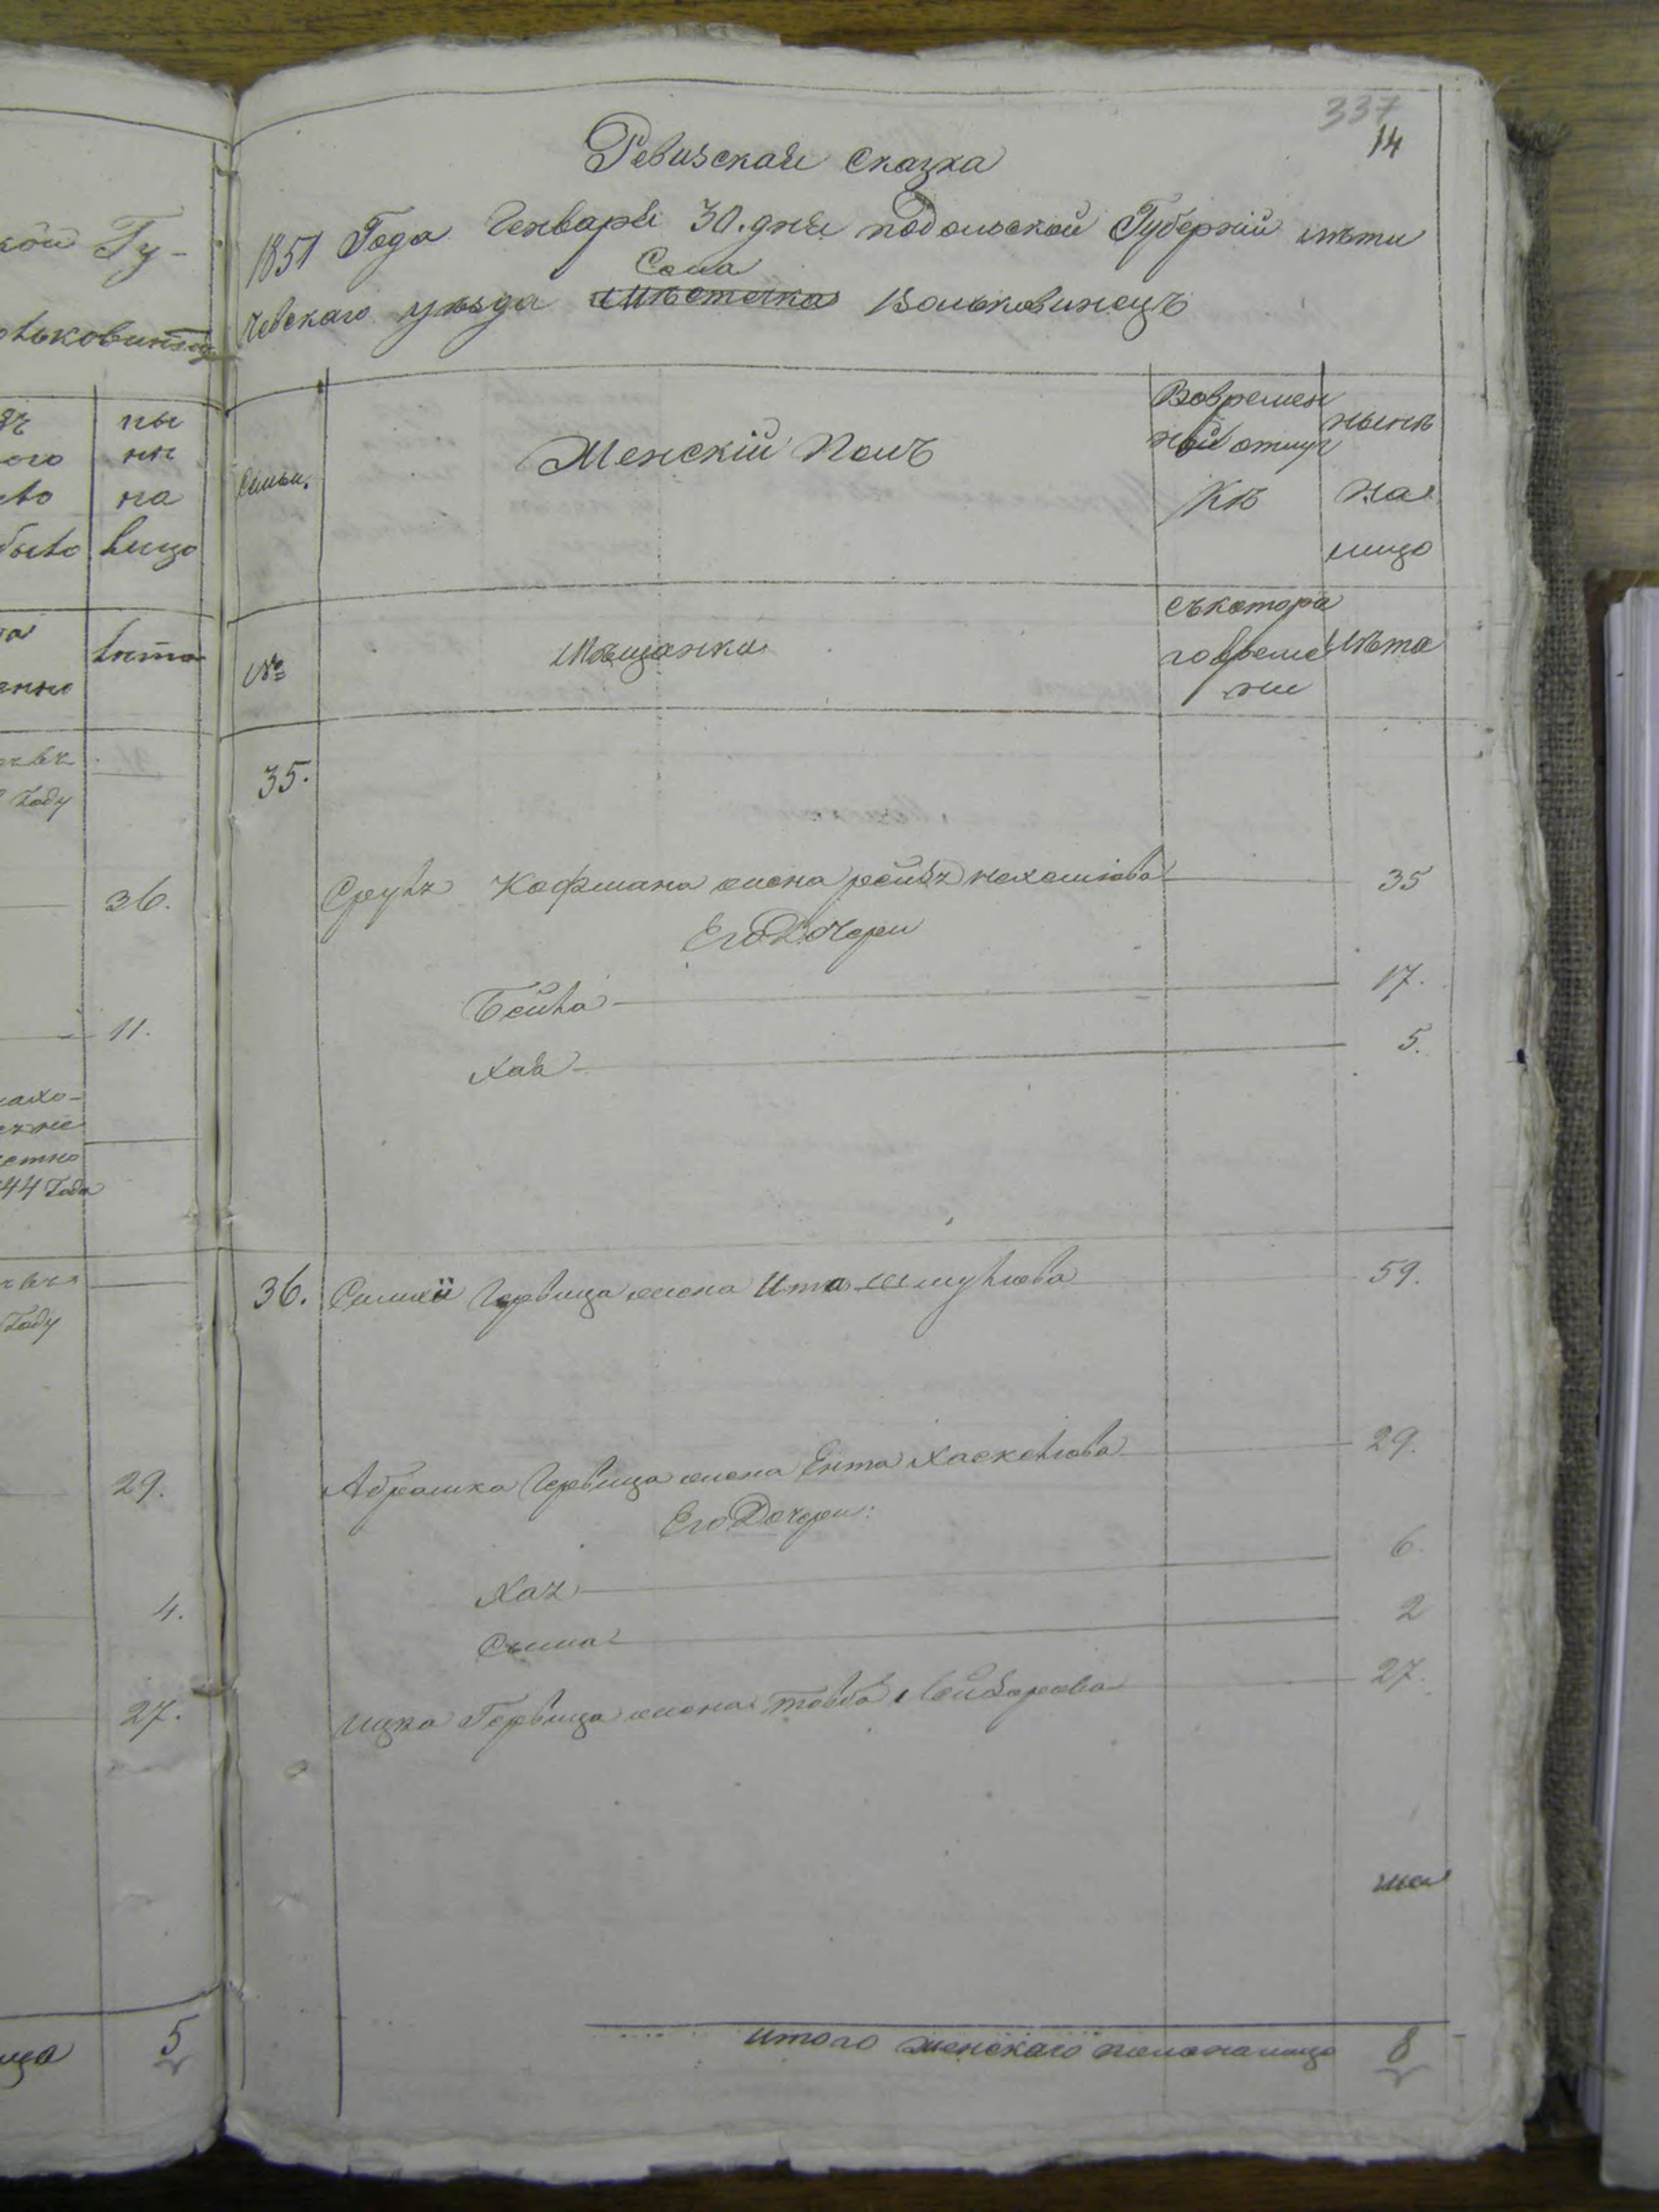 337
14
Ревизская сказка
1851 Года Генваря 30. дня подольской Губерній лѣти
Села
чевскаго уѣзда Мѣстечка Вольковинецъ
Семьи.
Женскій Полъ
Вовремен
ной отлуч
кѣ
нынѣ
на
лицо
№
Мѣщанки
съкотора
говреме
ни
Лѣта
35.
Сруля Кофмана жена рейзя нехеміова 35
Его Дочери
Бейла 17.
Хая 5.
36. Симхи Гервица жена Ита шмулiова 59.
Абрамка Гервица жена Ента Хаскелiова 29.
Его Дочери:
Хая 6.
Сима 2
ицка Гервица жена товба Лейзорова 27.
итого женскаго полоналицо 8
кой Гу-
ны
нѣ
на
лицо
лѣта
Году
36.
11.
44 Года
Году
29.
4.
27.
5